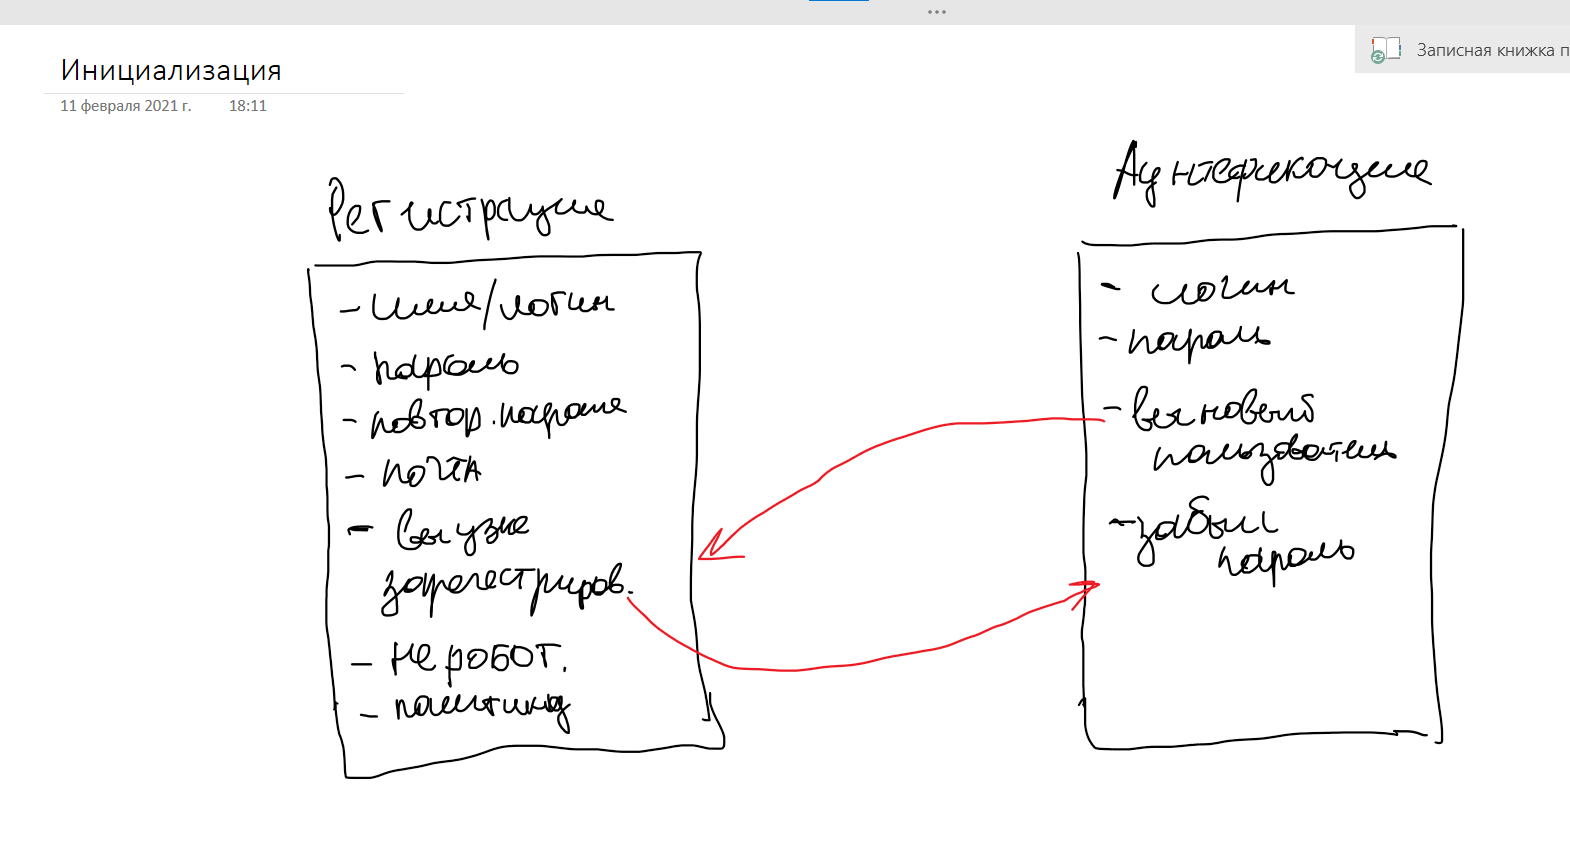 Записная книжка п
Инициализация
11 февраля 2021 г. 18:11
Регистрация
- имя/логин
- пароль
- повтор. пароля
- почта
- вы уже
зарегестриров.
- не робот.
- политика
Аунтефикация
- логин
- пароль
- вы новый
пользователь
- забыл
пароль